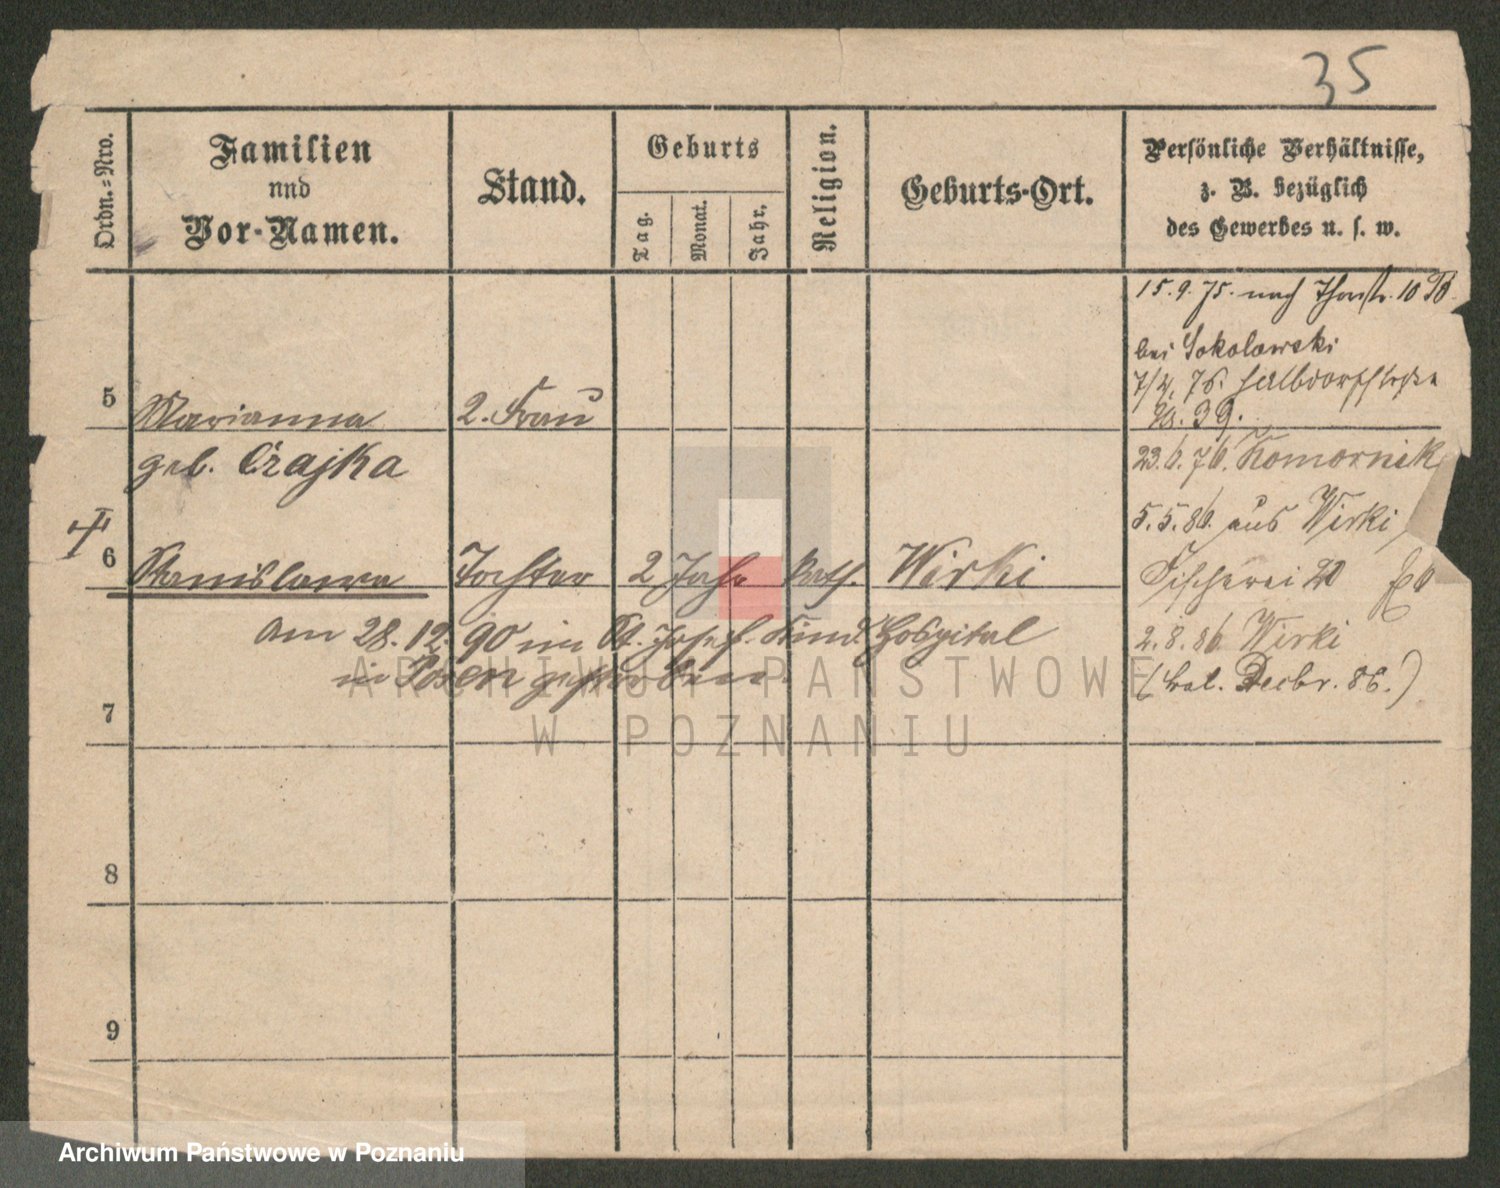 35
Ordn.=Nro.
Familien
und
Vor-Namen.
Stand.
Geburts
Tag.
Monat.
Jahr.
Religion.
Geburts-Ort.
Persönliche Verhältnisse,
z. B. bezüglich
des Gewerbes u. s. w.
15. 9. 75. nach Thorstr. 10
bei Sokolowski
5 Marianna 2. Frau
7/4. 76. Halbdorfstraße
No. 39.
geb. Czajka
23. 6. 76. Komornik
5. 5. 86. aus Wirki
6 Stanislawa Tochter 2 Jahr kath. Wirki
Fischerei
am 28. 12. 90 im St. Josef. Kind. Hospital
in Posen gestorben.
2. 8. 86. Wirki
7
8
9
ARCHIWUM PAŃSTWOWE
W POZNANIU
Archiwum Państwowe w Poznaniu